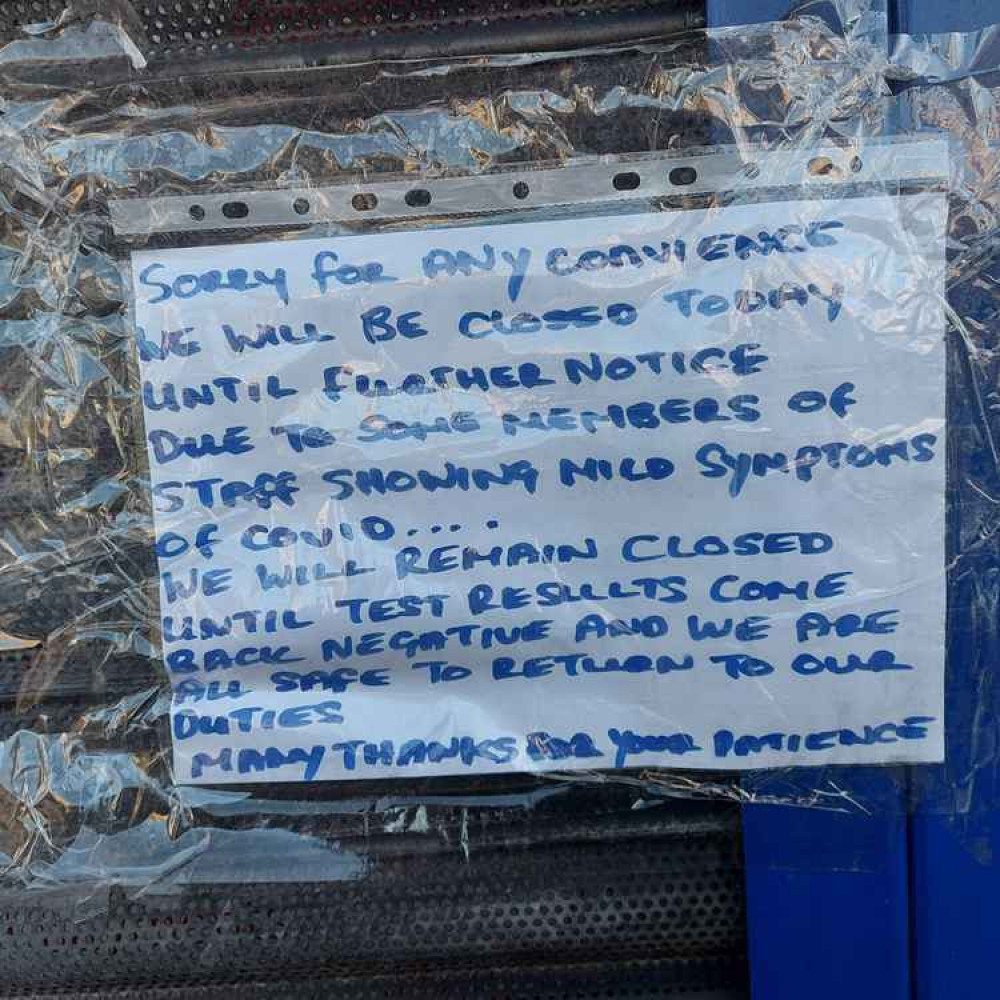 SORRY FOR ANY CONVIENCE
WE WILL BE CLOSED TODAY
UNTIL FURTHER NOTICE
DUE TO SOME MEMBERS OF
STAFF SHOWING MILD SYMPTOMS
OF COVID.....
WE WILL REMAIN CLOSED
UNTIL TEST RESULLTS COME
BACK NEGATIVE AND WE ARE
ALL SAFE TO RETURN TO OUR
DUTIES
MANY THANKS FOR YOUR PATIENCE